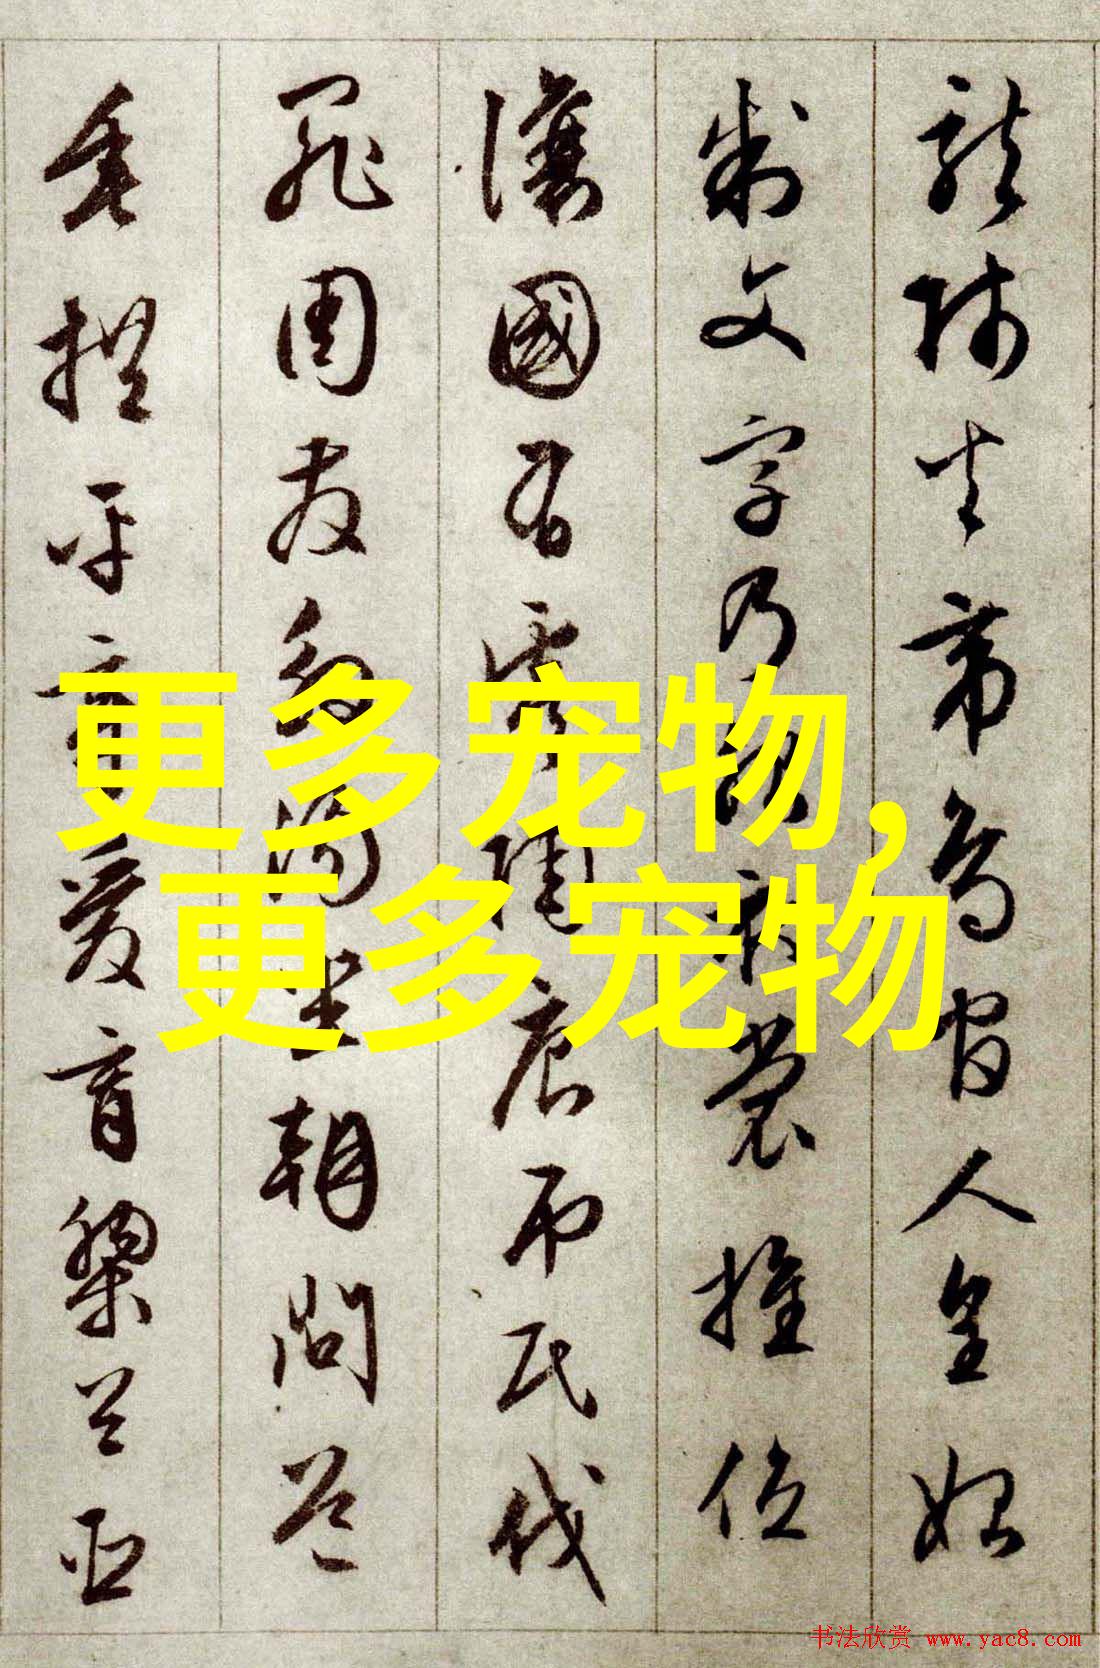 龍師火帝鳥官人皇始
制文字乃服衣裳推位
讓國有虞陶唐弔民伐
罪周發殷湯坐朝問道
垂拱平章愛育黎首臣
更多宠物,
更多宠物
书法欣赏 www.yac8.com